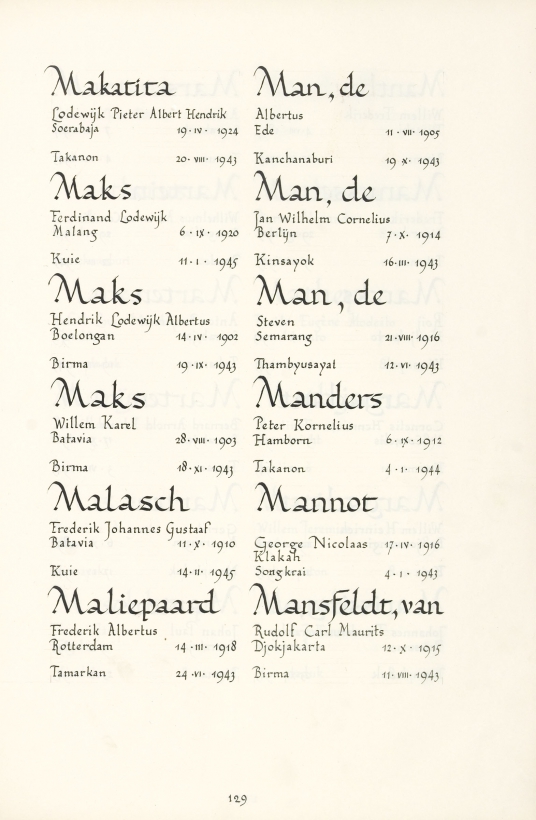 Makatita
Lodewijk Pieter Albert Hendrik
Soerabaja 19·IV· 1924
Takanon 20·VIII· 1943
Maks
Ferdinand Lodewijk
Malang 6·IX· 1920
Kuie 11·I· 1945
Maks
Hendrik Lodewijk Albertus
Boelongan 14·IV· 1902
Birma 19·IX· 1943
Maks
Willem Karel
Batavia 28·VIII· 1903
Birma 18·XI· 1943
Malasch
Frederik Johannes Gustaaf
Batavia 11·X· 1910
Kuie 14·II· 1945
Maliepaard
Frederik Albertus
Rotterdam 14·III· 1918
Tamarkan 24·VI· 1943
Man, de
Albertus
Ede 11·VII· 1905
Kanchanaburi 19 X· 1943
Man, de
Jan Wilhelm Cornelius
Berlijn 7·X· 1914
Kinsayok 16·III· 1943
Man, de
Steven
Semarang 21·VIII·1916
Thambyusayat 12·VI· 1943
Manders
Peter Kornelius
Hamborn 6·IX·1912
Takanon 4·I· 1944
Mannot
George Nicolaas 17·IV· 1916
Klakah
Songkrai 4·I· 1943
Mansfeldt, van
Rudolf Carl Maurits
Djokjakarta 12·X· 1915
Birma 11·VIII· 1943
129